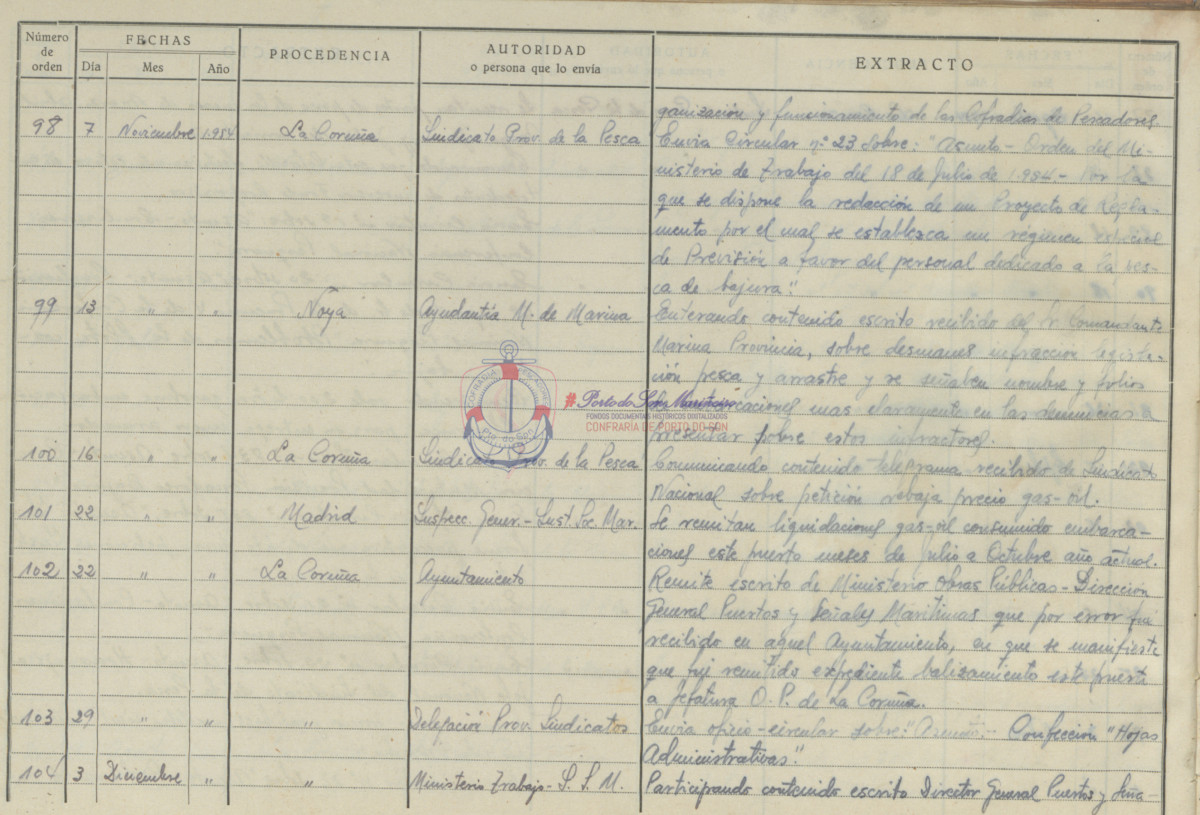 Número de orden FECHAS PROCEDENCIA AUTORIDAD o persona que lo envía EXTRACTO
Día Mes Año
ganización y funcionamiento de las Cofradias de Pescadores
98 7 Noviembre 1.954 La Coruña Sindicato Prov. de la Pesca Envia Circular nº 23 sobre: "Asunto - Orden del Mi-
nisterio de Trabajo del 18 de Julio de 1.954 - Por la
que se dispone la redacción de un Proyecto de Regla-
mento por el cual se establezca un régimen especial
de Previsión a favor del personal dedicado a la pes-
ca de bajura."
99 13 " " Noya Ayudantía M. de Marina Enterando contenido escrito recibido del Sr Comandante
Marina Provincia, sobre desmanes infracción legisla-
ción pesca y arrastre y se señalen nombre y folios
mas claramente en las denuncias a
presentar sobre estos infractores.
100 16 " " La Coruña Sindicato Prov. de la Pesca Comunicando contenido telegrama recibido de Sindicato
Nacional sobre petición rebaja precio gas-oil.
101 22 " " Madrid Inspecc. Gener.- Inst. Soc. Mar. Se remitan liquidaciones gas-oil consumido embarca-
ciones este puerto meses de Julio a Octubre año actual.
102 22 " " La Coruña Ayuntamiento Remite escrito de Ministerio Obras Públicas - Dirección
General Puertos y Señales Marítimas que por error fué
recibido en aquel Ayuntamiento, en que se manifieste
que fué remitido expediente balizamiento este puerto
a Jefatura O.P. de La Coruña.
103 29 " " " Delegación Prov. Sindicatos Envia oficio-circular sobre: "Asunto:- Confección "Hojas
Administrativas."
104 3 Diciembre " " Ministerio Trabajo - S. S. M. Participando contenido escrito Director General Puertos y Seña-
#Porto do Son Mariñeiro
FONDOS DOCUMENTAIS HISTÓRICOS DIGITALIZADOS
CONFRARÍA DE PORTO DO SON